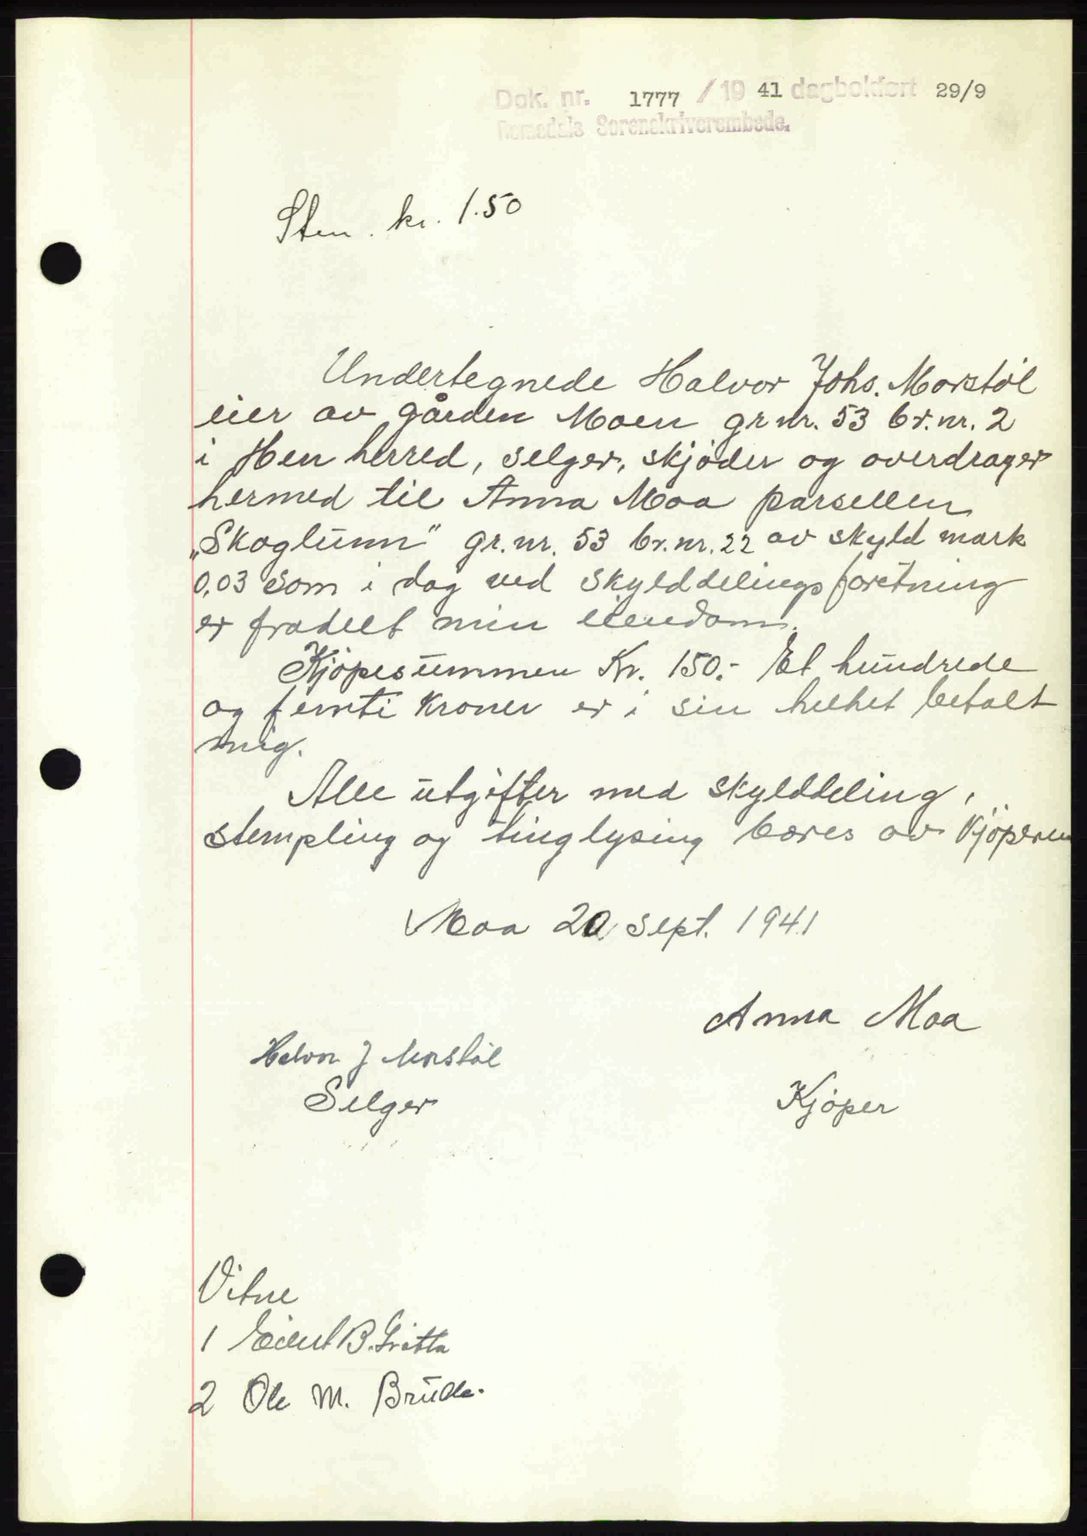 Dok. nr. 1777 / 19 41 dagbokført 29/9
Romsdals Sorenskriverembede.
Stem. kr. 1.50
Undertegnede Halvor Johs. Morstøl
eier av gården Moen gr.nr. 53 br.nr. 2
i Hen herred, selger, skjøder og overdrager
hermed til Anna Moa parsellen
„Skoglunn" gr.nr. 53 br.nr. 22 av skyld mark
0,03 som i dag ved skylddelingsforetning
er fradelt min eiendom.
Kjøpesummen Kr. 150.- Et hundrede
og femti Kroner er i sin helhet betalt
mig.
Alle utgifter med skylddeling,
stempling og tinglysing bæres av Kjøperen
Moa 20 sept. 1941
Anna Moa
Halvor J Morstøl
Selger
Kjøper
Vitne
1 Eilert B. Gridta
2 Ole M. Brude.